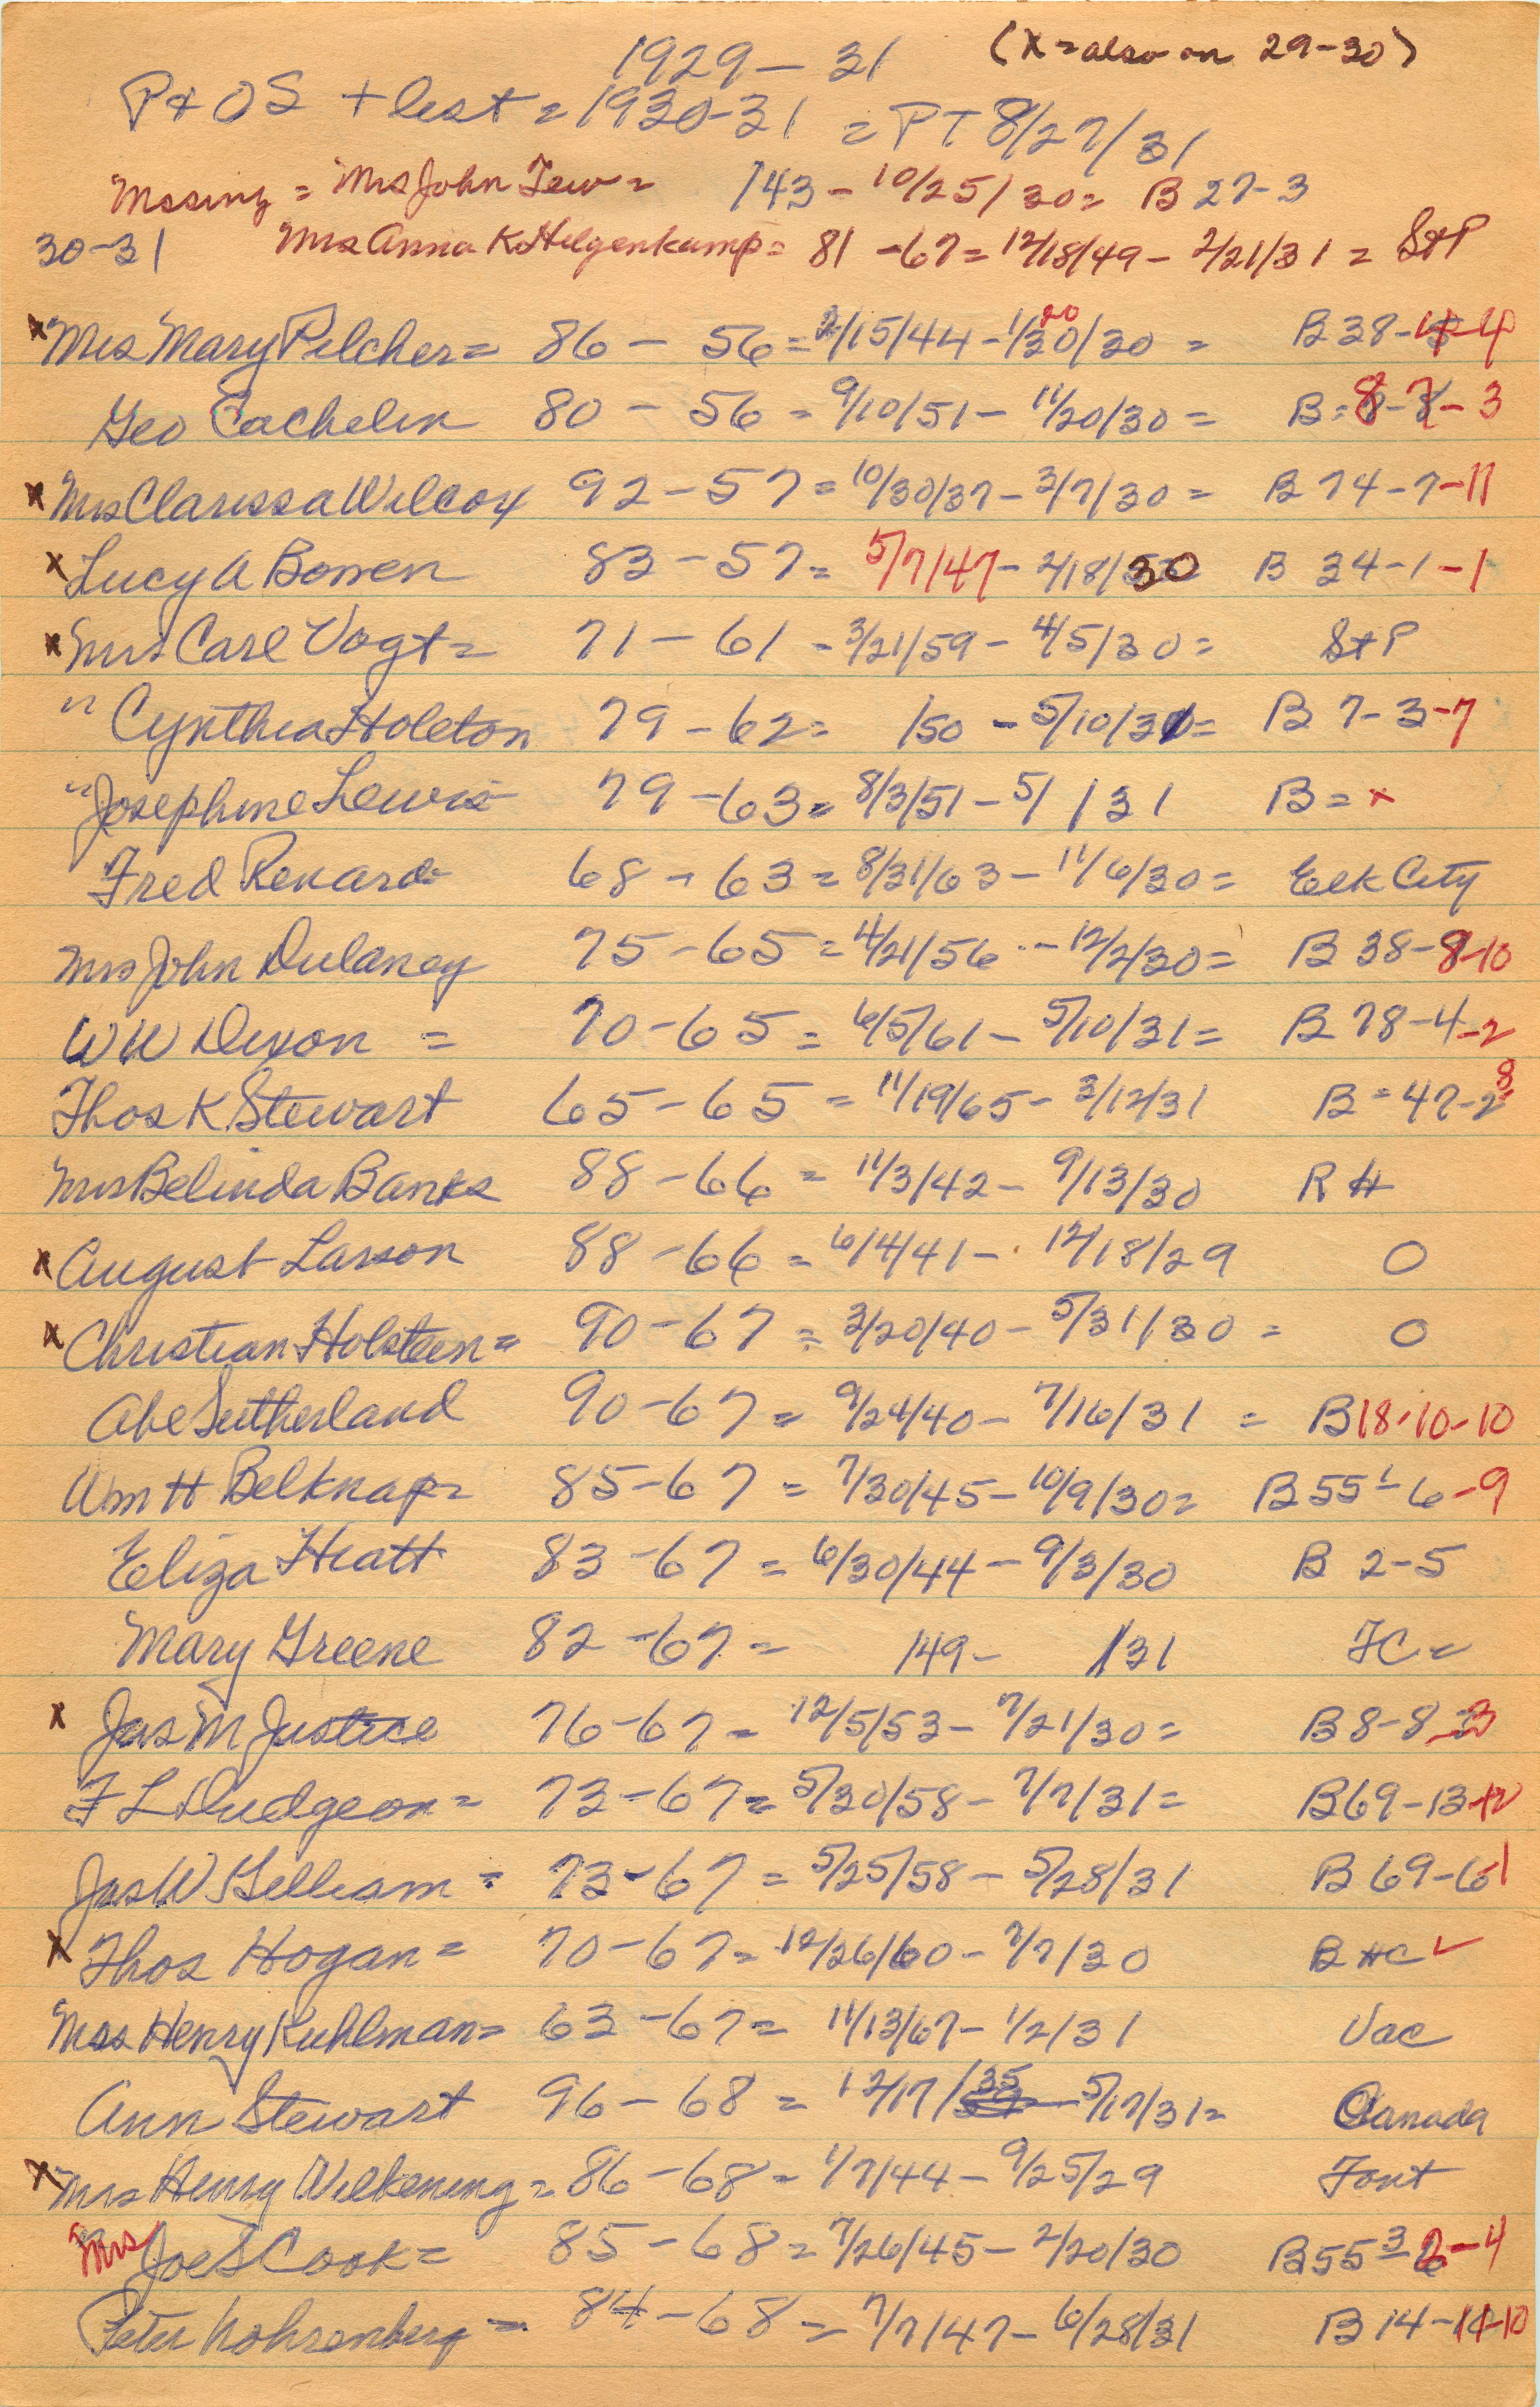 1929 - 31 (X = also on 29-30)
P & OS + lest = 1930-31 = PT 8/27/31
Missing = Mrs John Tew = /43 - 10/25/30 = B 27-3
30-31 Mrs Anna K Hilgenkamp = 81 - 67 = 12/18/49 - 2/21/31 = St P
x Mrs Mary Pilcher = 86 - 56 = 2/15/44 - 1/20/30 = B 38-4-4
Geo Cachelin 80 - 56 = 9/10/51 - 11/20/30 = B = 8-7-3
x Mrs Clarissa Wilcox 92 - 57 = 10/30/37 - 3/7/30 = B 74-7-11
x Lucy A Bowen 83 - 57 = 5/7/47 - 2/18/30 B 34-1-1
x Mrs Carl Vogt = 71 - 61 - 3/21/59 - 4/5/30 = St P
" Cynthia Holeton 79 - 62 = /50 - 5/10/31 = B 7-3-7
" Josephine Lewis 79 - 63 = 8/3/51 - 5/ /31 B = x
Fred Renard 68 - 63 = 8/31/63 - 11/6/30 = Elk City
Mrs John Dulaney 75 - 65 = 4/21/56 - 12/2/30 = B 38-8-10
W W Dixon = 70 - 65 = 6/5/61 - 5/10/31 = B 78-4-2
Thos K Stewart 65 - 65 = 11/19/65 - 3/12/31 B = 47-2-8
Mrs Belinda Banks 88 - 66 = 11/3/42 - 9/13/30 R H
x August Larson 88 - 66 = 6/4/41 - 12/18/29 O
x Christian Holsteen = 90 - 67 = 3/20/40 - 5/31/30 = O
Abe Sutherland 90 - 67 = 9/24/40 - 7/16/31 = B 18-10-10
Wm H Belknap = 85 - 67 = 7/30/45 - 10/9/30 = B 55 1-6-9
Eliza Hiatt 83 - 67 = 6/30/44 - 9/3/30 B 2-5
Mary Greene 82 - 67 = /49 - /31 FC =
x Jas M Justice 76 - 67 = 12/5/53 - 7/21/30 = B 8-8-3
F L Dudgeon = 73 - 67 = 5/30/58 - 7/7/31 = B 69-13-12
Jas W Gilliam = 73 - 67 = 5/25/58 - 5/28/31 B 69-6-1
x Thos Hogan = 70 - 67 = 12/26/60 - 7/7/30 B HC ✓
Mrs Henry Kuhlman = 63 - 67 = 11/13/67 - 1/2/31 Vac
Ann Stewart 96 - 68 = 12/17/35 - 5/17/31 = Canada
x Mrs Henry Wilkening = 86 - 68 = 1/7/44 - 9/25/29 Font
Mrs Joe S Cook = 85 - 68 = 7/26/45 - 2/20/30 B 55 3-2-4
Peter Mohrenberg = 84 - 68 = 7/7/47 - 6/28/31 B 14-11-10